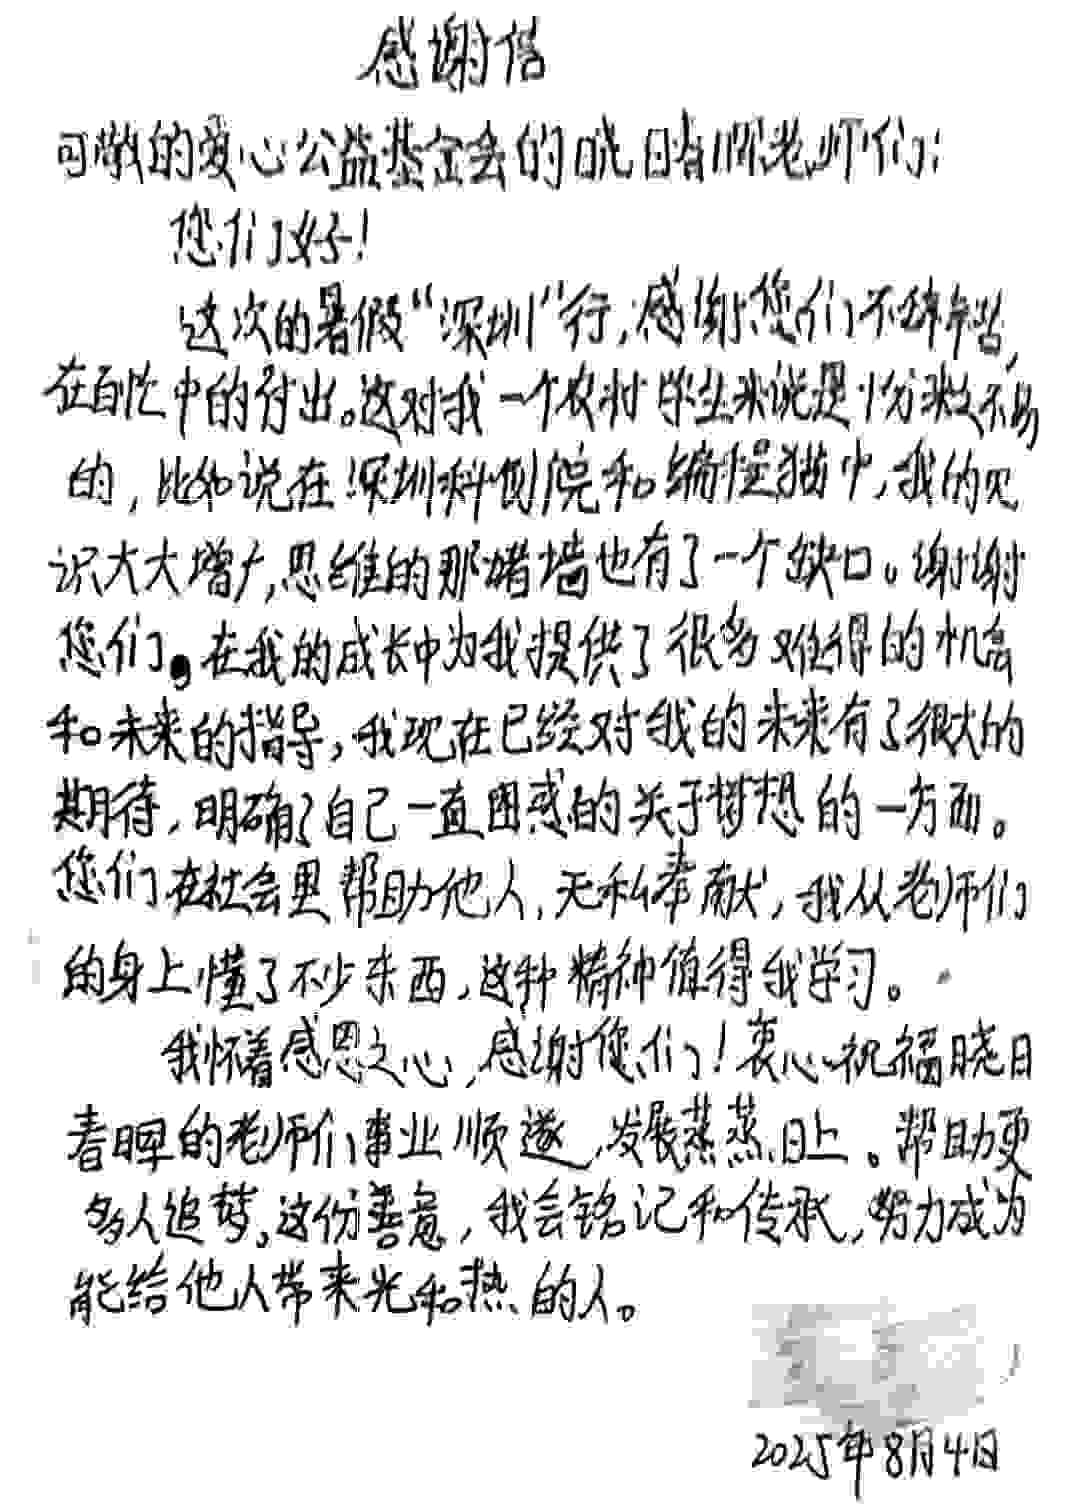 感谢信
可敬的爱心公益基金会的晓日春晖老师们:
您们好!
这次的暑假“深圳”行,感谢您们不辞辛苦,
在百忙中的付出。这对我一个农村学生来说是份来之不易
的,比如说在深圳科创院和编程猫中,我的见
识大大增广,思维的那堵墙也有了一个缺口。谢谢
您们。在我的成长中为我提供了很多难得的机会
和未来的指导,我现在已经对我的未来有了很大的
期待,明确了自己一直困惑的关于梦想的一方面。
您们在社会里帮助他人,无私奉献,我从老师们
的身上懂了不少东西,这种精神值得我学习。
我怀着感恩之心,感谢您们!衷心祝福晓日
春晖的老师们事业顺遂,发展蒸蒸日上。帮助更
多人追梦。这份善意,我会铭记和传承,努力成为
能给他人带来光和热的人。
2025年8月4日